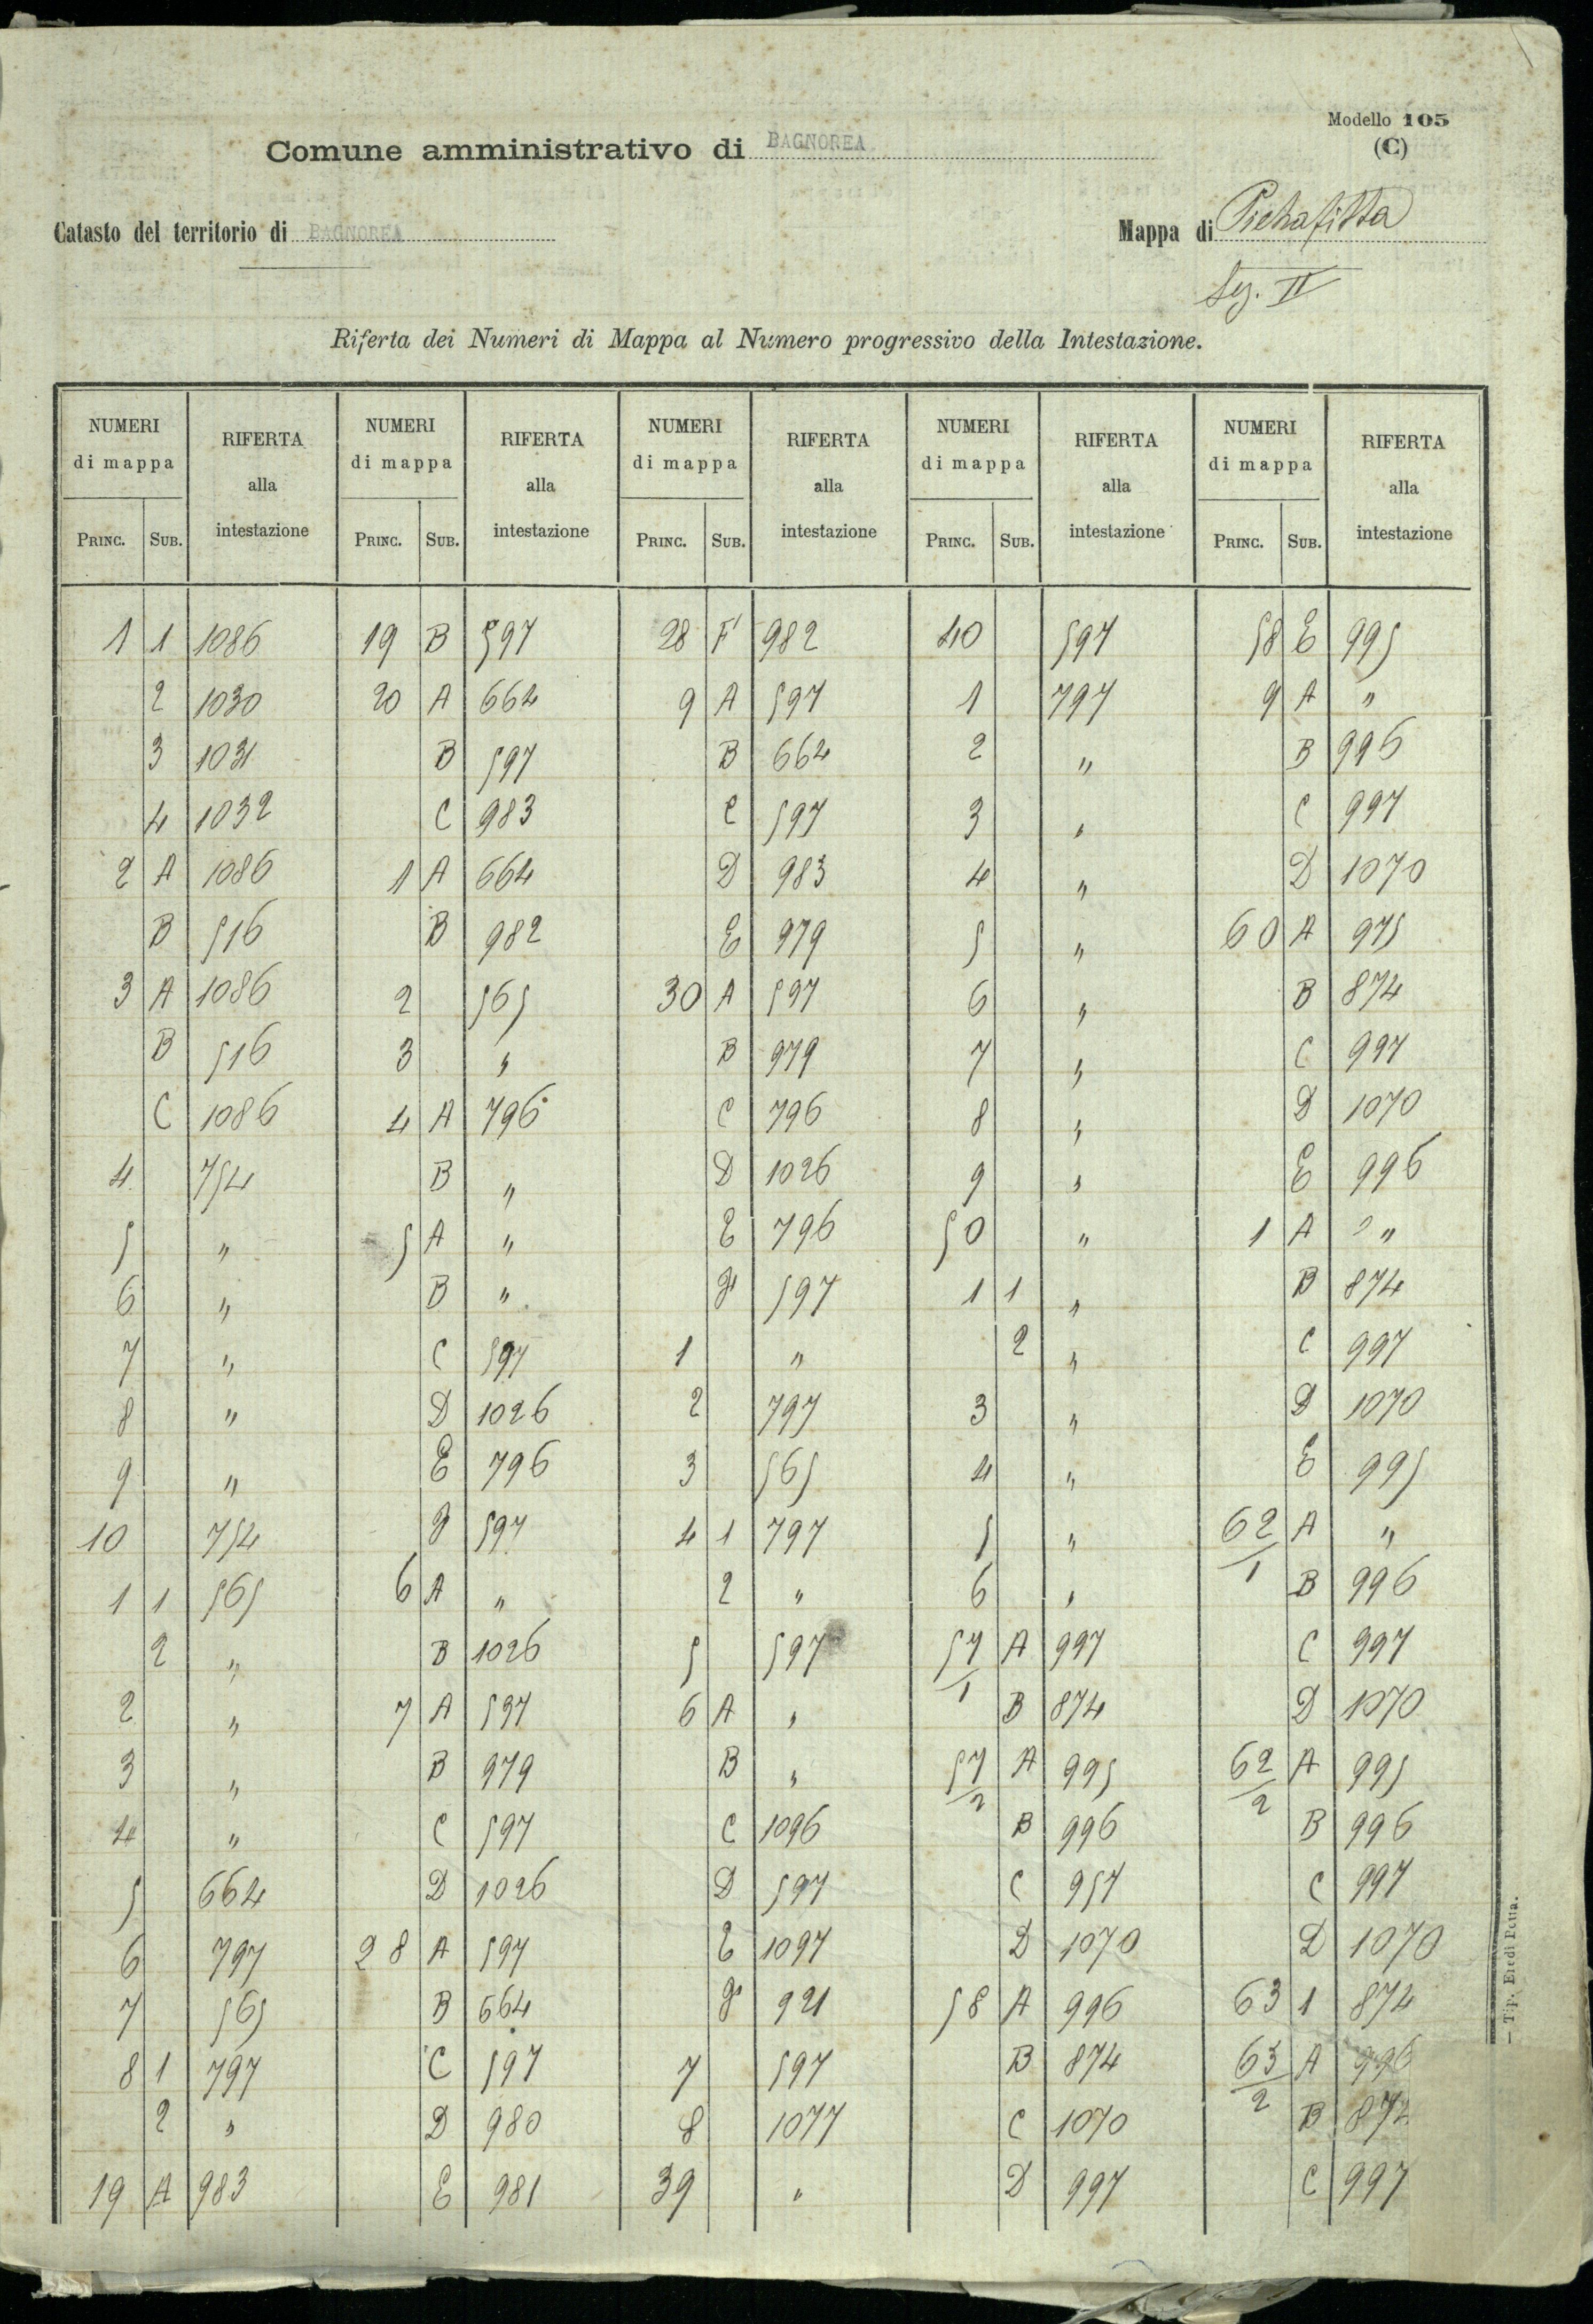 Modello 105
(C)
Comune amministrativo di BAGNOREA
Catasto del territorio di BAGNOREA
Mappa di Pietrafitta
Sez. II
Riferta dei Numeri di Mappa al Numero progressivo della Intestazione.
NUMERI di mappa RIFERTA alla intestazione NUMERI di mappa RIFERTA alla intestazione NUMERI di mappa RIFERTA alla intestazione NUMERI di mappa RIFERTA alla intestazione NUMERI di mappa RIFERTA alla intestazione
PRINC. SUB. PRINC. SUB. PRINC. SUB. PRINC. SUB. PRINC. SUB.
1 1 1086 19 B 597 28 F 982 40 597 58 E 995
2 1030 20 A 664 9 A 597 1 797 9 A "
3 1031 B 597 B 664 2 " B 996
4 1032 C 983 C 597 3 " C 997
2 A 1086 1 A 664 D 983 4 " D 1070
B 516 B 982 E 979 5 " 60 A 975
3 A 1086 2 565 30 A 597 6 " B 874
B 516 3 " B 979 7 " C 997
C 1086 4 A 796 C 796 8 " D 1070
4 754 B " D 1026 9 " E 996
5 " 5 A " E 796 50 " 1 A "
6 " B " F 597 1 1 " B 874
7 " C 597 1 " 2 " C 997
8 " D 1026 2 797 3 " D 1070
9 " E 796 3 565 4 " E 995
10 754 F 597 4 1 797 5 " 62/1 A "
1 1 565 6 A " 2 " 6 " B 996
2 " B 1026 5 597 57/1 A 997 C 997
2 " 7 A 597 6 A " B 874 D 1070
3 " B 979 B " 57/2 A 995 62/2 A 995
4 " C 597 C 1096 B 996 B 996
5 664 D 1026 D 597 C 957 C 997
6 797 28 A 597 E 1097 D 1070 D 1070
7 565 B 664 F 921 58 A 996 63 1 874
8 1 797 C 597 7 597 B 874 63/2 A 996
2 " D 980 8 1077 C 1070 B 874
19 A 983 E 981 39 " D 997 C 997
— Tip. Eredi Botta.